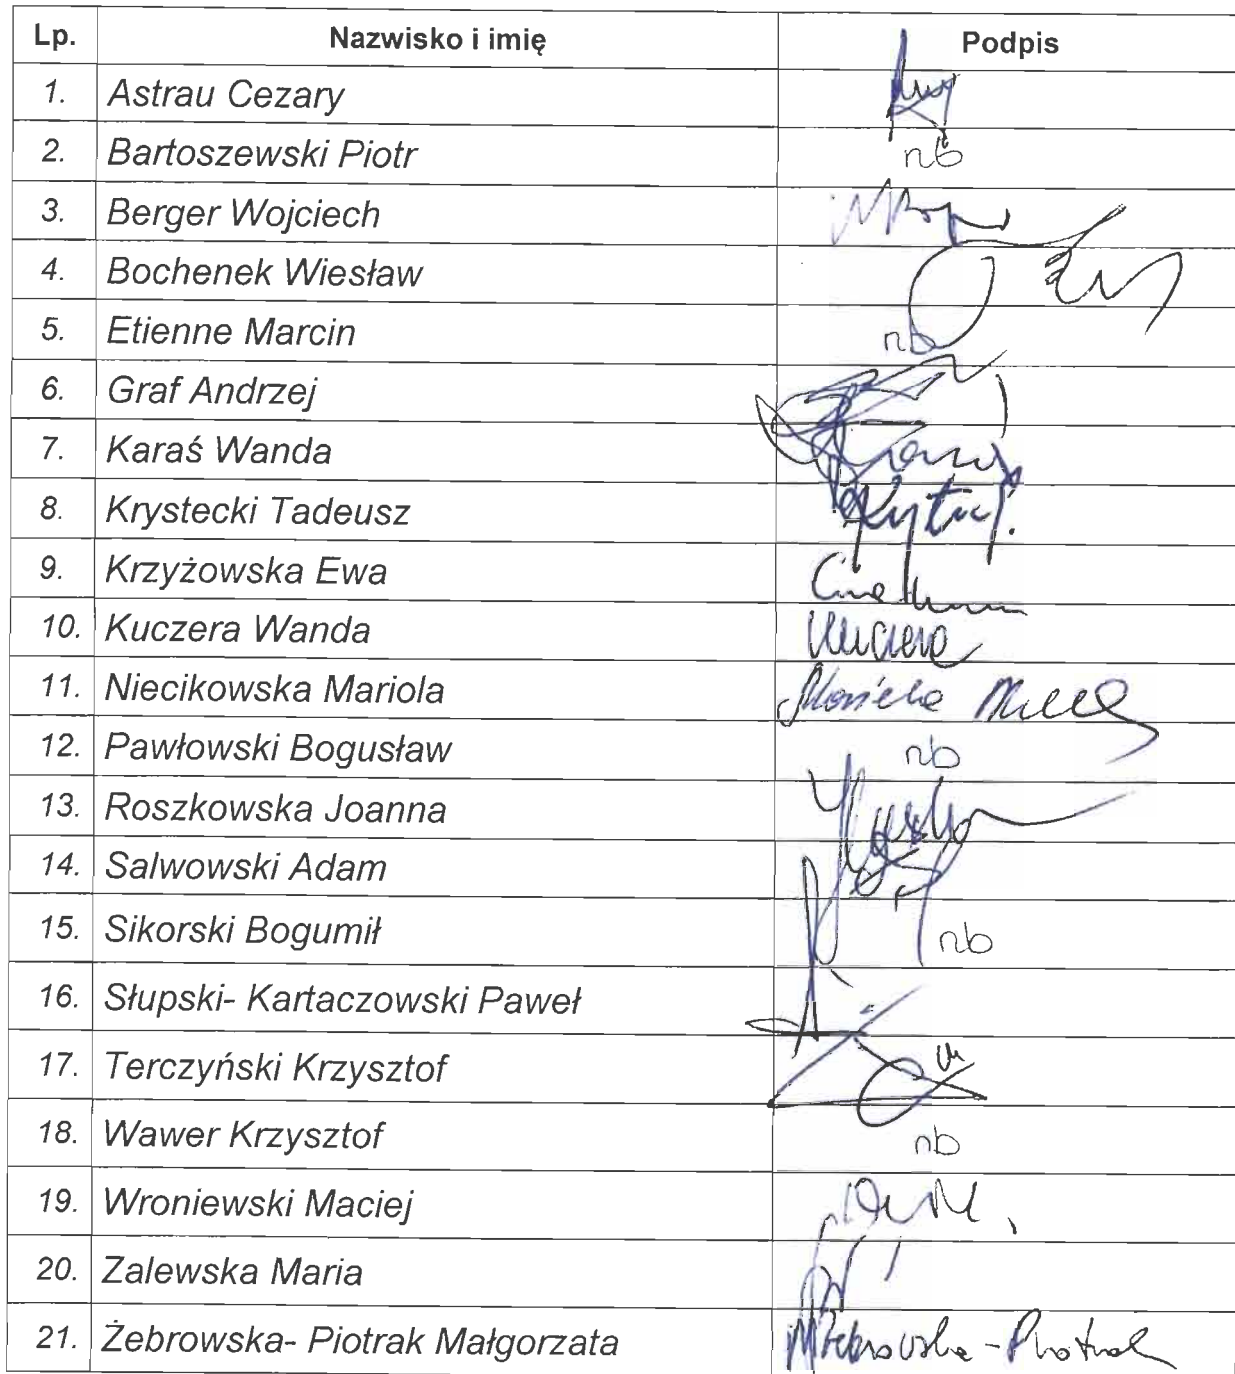 Lp. Nazwisko i imię Podpis
1. Astrau Cezary
2. Bartoszewski Piotr nb
3. Berger Wojciech
4. Bochenek Wiesław
5. Etienne Marcin nb
6. Graf Andrzej
7. Karaś Wanda
8. Krystecki Tadeusz
9. Krzyżowska Ewa
10. Kuczera Wanda
11. Niecikowska Mariola
12. Pawłowski Bogusław nb
13. Roszkowska Joanna
14. Salwowski Adam
15. Sikorski Bogumił nb
16. Słupski- Kartaczowski Paweł
17. Terczyński Krzysztof
18. Wawer Krzysztof nb
19. Wroniewski Maciej
20. Zalewska Maria
21. Żebrowska- Piotrak Małgorzata